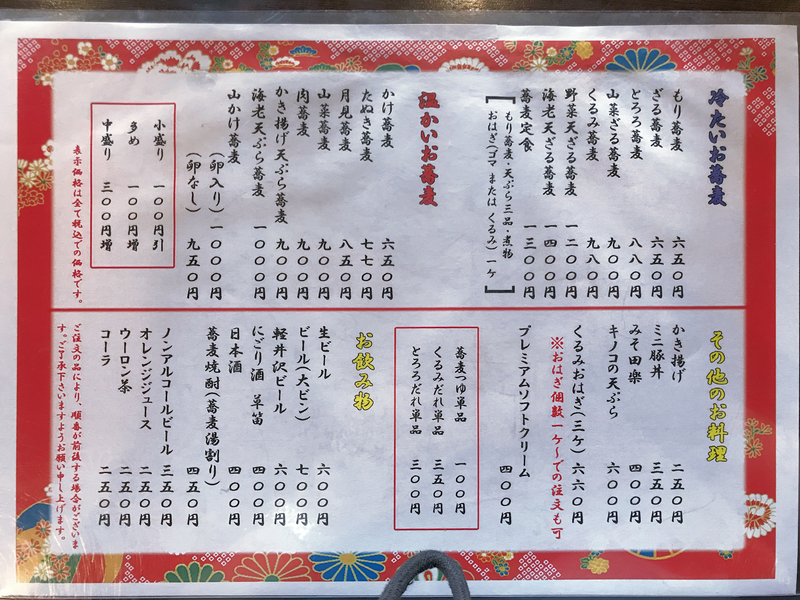 冷たいお蕎麦
もり蕎麦 六五〇円
ざる蕎麦 六五〇円
とろろ蕎麦 八八〇円
山菜ざる蕎麦 九〇〇円
くるみ蕎麦 九八〇円
野菜天ざる蕎麦 一二〇〇円
海老天ざる蕎麦 一四〇〇円
蕎麦定食 一三〇〇円
[もり蕎麦・天ぷら三品・煮物
おはぎ(ゴマ または くるみ)一ヶ]
温かいお蕎麦
かけ蕎麦 六五〇円
たぬき蕎麦 七七〇円
月見蕎麦 八五〇円
山菜蕎麦 九〇〇円
肉蕎麦 九〇〇円
かき揚げ天ぷら蕎麦 九〇〇円
海老天ぷら蕎麦 一〇〇〇円
山かけ蕎麦
(卵入り) 一〇〇〇円
(卵なし) 九五〇円
小盛り 一〇〇円引
多め 一〇〇円増
中盛り 三〇〇円増
表示価格は全て税込での価格です。
その他のお料理
かき揚げ 二五〇円
ミニ豚丼 三五〇円
みそ田楽 四〇〇円
キノコの天ぷら 六〇〇円
くるみおはぎ(三ケ) 六六〇円
※おはぎ個数一ケ〜での注文も可
プレミアムソフトクリーム 四〇〇円
蕎麦つゆ単品 一〇〇円
くるみだれ単品 三五〇円
とろろだれ単品 三〇〇円
お飲み物
生ビール 六〇〇円
ビール(大ビン) 七〇〇円
軽井沢ビール 六〇〇円
にごり酒 草笛 四〇〇円
日本酒 四〇〇円
蕎麦焼酎(蕎麦湯割り) 四五〇円
ノンアルコールビール 三五〇円
オレンジジュース 二五〇円
ウーロン茶 二五〇円
コーラ 二五〇円
ご注文の品により、順番が前後する場合がございま
す。ご了承下さいますようお願い申し上げます。